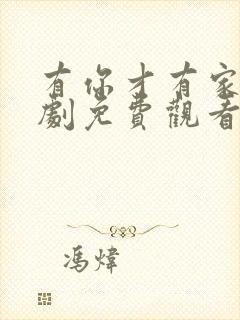 有你才有家
劇免費觀看
馮煒